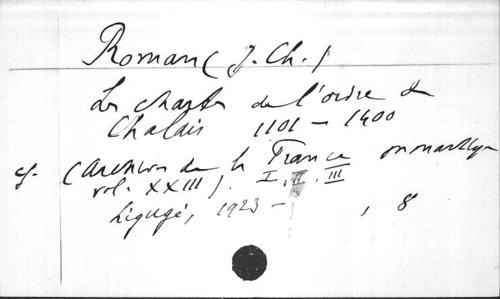 Roman (J.-Ch.)
Les chartes de l'ordre de
Chalais 1101 - 1400
cf. (Archives de la France monastique
vol. XXIII). I, II. III
Ligugé, 1923- , 8°